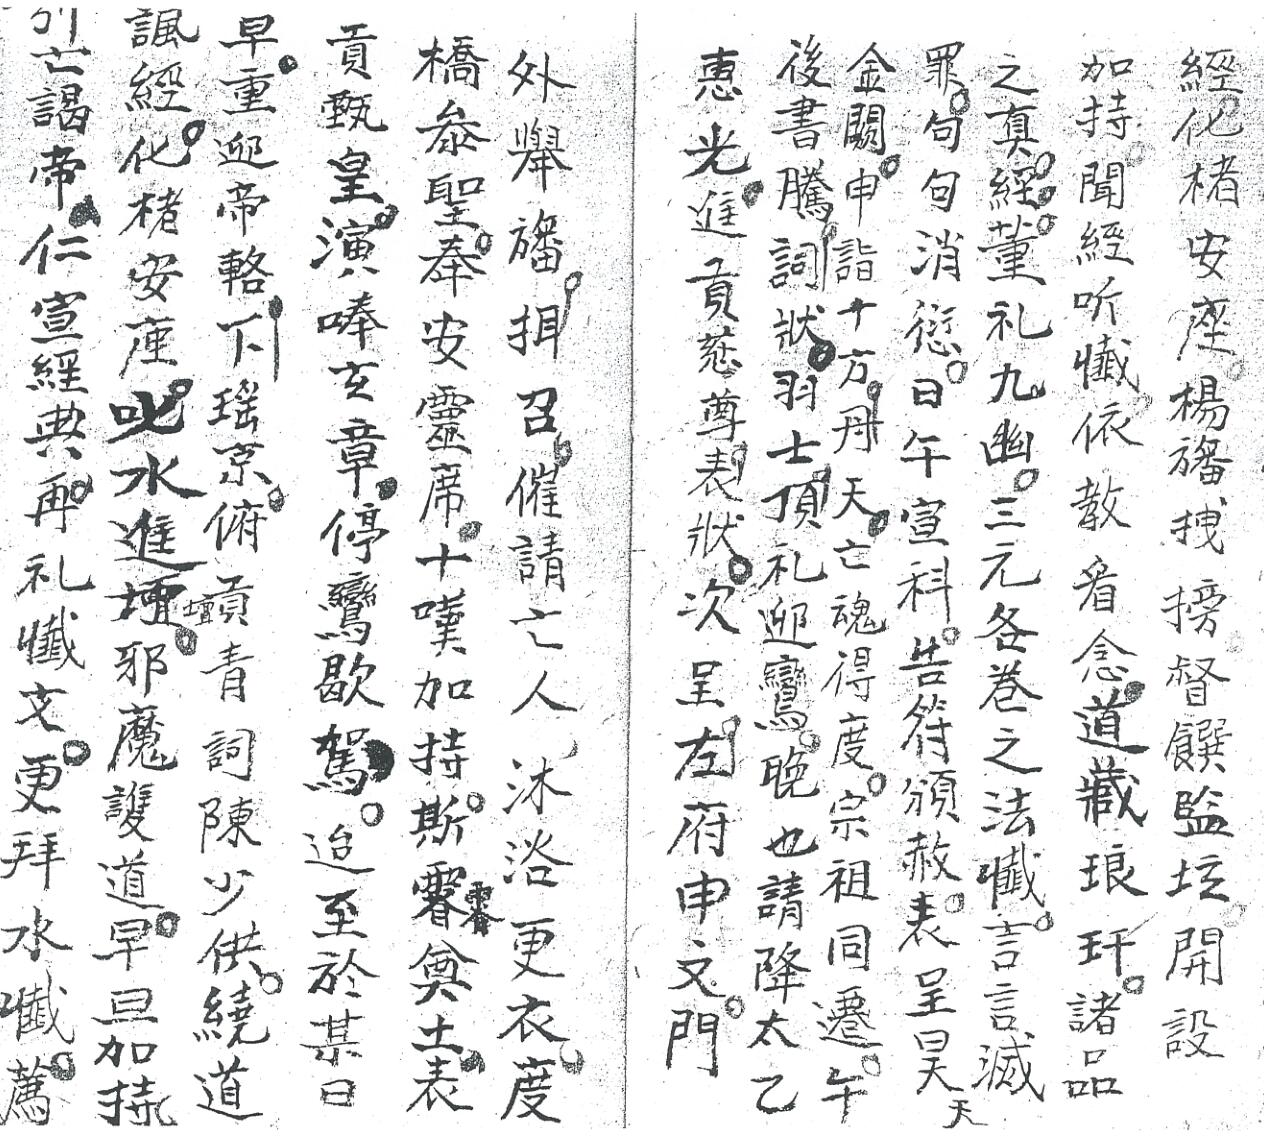 經化楮安座楊旛拽搒督饌監坛開設
加持聞經听懺依教看念道藏琅玕諸品
之真經董礼九幽三元各卷之法懺言言滅
罪句句消愆日午宣科告符頒赦表呈昊天
金闕申詣十方丹天亡魂得度宗祖同遷午
後書騰詞狀羽士頂礼迎鸞晚也請降太乙
惠光進貢慈尊表狀次呈左府申文門
外舉旛捐召催請亡人沐浴更衣度
橋叅聖奉安靈席十嘆加持斯霄奠土表
貢甄皇演唪玄章停鸞歇駕迨至於某日
早重迎帝輅下瑤京俯貢青詞陳少供繞道
壇
諷經化楮安座叱水進壇邪魔護道早旦加持
亡謁帝仁宣經典再礼懺文更拜水懺薦